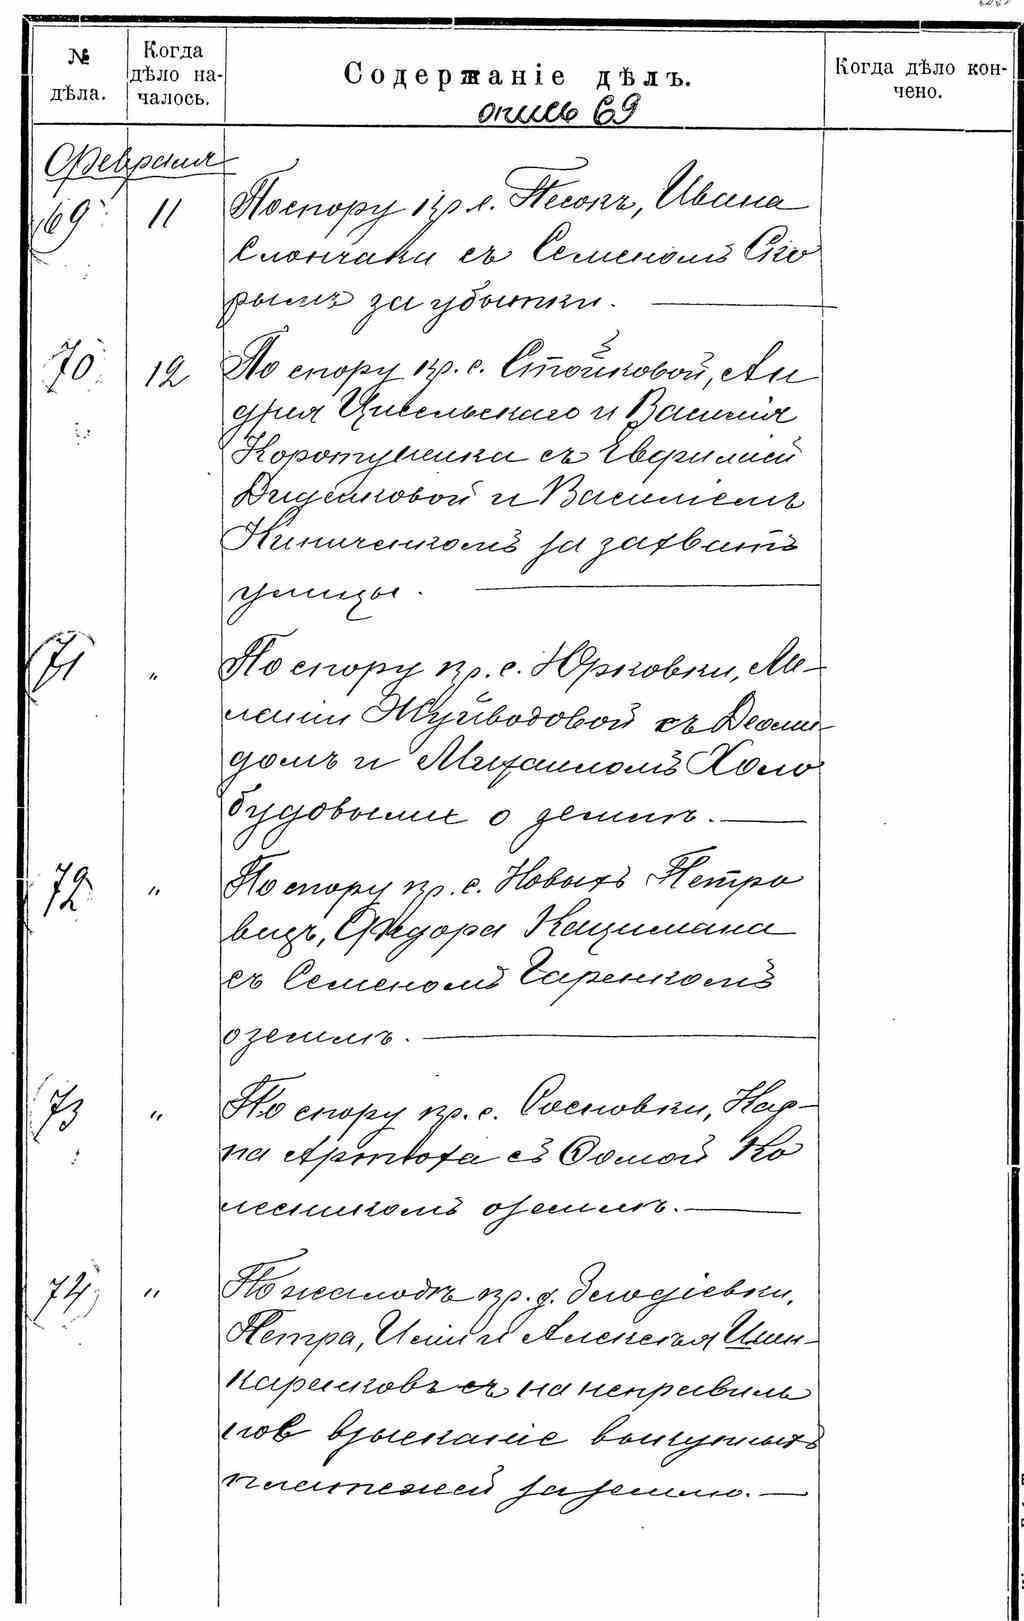 № дѣла.
Когда дѣло на-
чалось.
Содержаніе дѣлъ.
Когда дѣло кон-
чено.
опись 69
Февраля
69 11 По спору кр. с. Песокъ, Ивана
Слончака съ Семеномъ Ско
рымъ за убытки.
70 12 По спору кр. с. Стойковой, Ан
дрея Цисельскаго и Василія
Коротушека съ Евфиміей
Дидсиковой и Василіемъ
Киниченкомъ за захватъ
улицы.
71 " По спору кр. с. Юрковки, Ме-
ланіи Жуйводовой съ Деоми-
домъ и Михаиломъ Холо
будовыми о землѣ.
72 " По спору кр. с. Новыхъ Петро
вецъ, Федора Кацимана
съ Семеномъ Гаренкомъ
о землѣ.
73 " По спору кр. с. Сосновки, Кар-
па Артюха съ Фомой Ко
лесникомъ о землѣ.
74 " По жалобѣ кр. д. Злодіевки,
Петра, Иліи и Алексѣя Шин-
карековъ съ на неправиль
ное взысканіе выкупныхъ
платежей за землю.